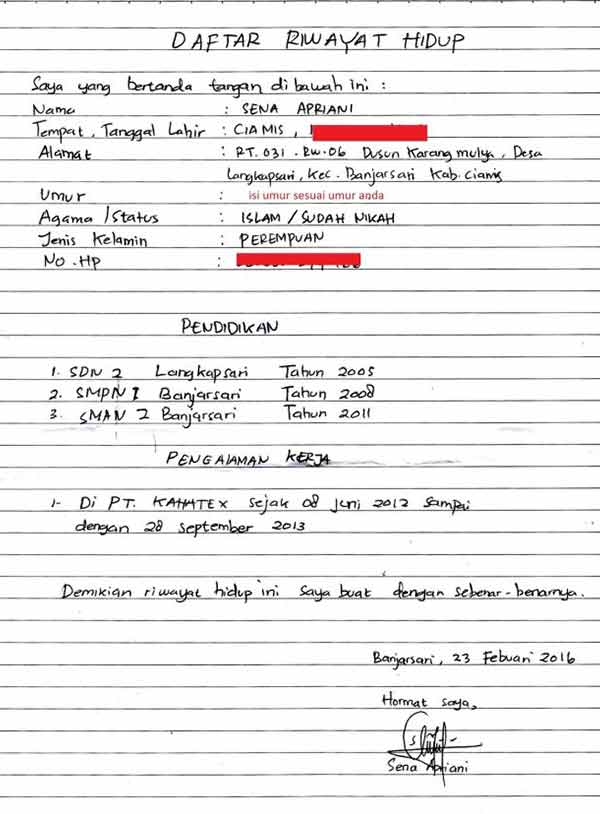 DAFTAR RIWAYAT HIDUP
Saya yang bertanda tangan di bawah ini :
Nama : SENA APRIANI
Tempat, Tanggal Lahir : CIAMIS,
Alamat : RT. 031 . RW. 06 Dusun Karangmulya, Desa
Langkapsari, Kec. Banjarsari Kab. Ciamis
Umur : isi umur sesuai umur anda
Agama / Status : ISLAM / SUDAH NIKAH
Jenis Kelamin : PEREMPUAN
No. HP :
PENDIDIKAN
1. SDN 2 Langkapsari Tahun 2005
2. SMPN 1 Banjarsari Tahun 2008
3. SMAN 2 Banjarsari Tahun 2011
PENGALAMAN KERJA
1- Di PT. KAHATEX sejak 08 Juni 2012 Sampai
dengan 28 September 2013
Demikian riwayat hidup ini saya buat dengan sebenar-benarnya.
Banjarsari, 23 Febuari 2016
Hormat saya,
Sena Apriani